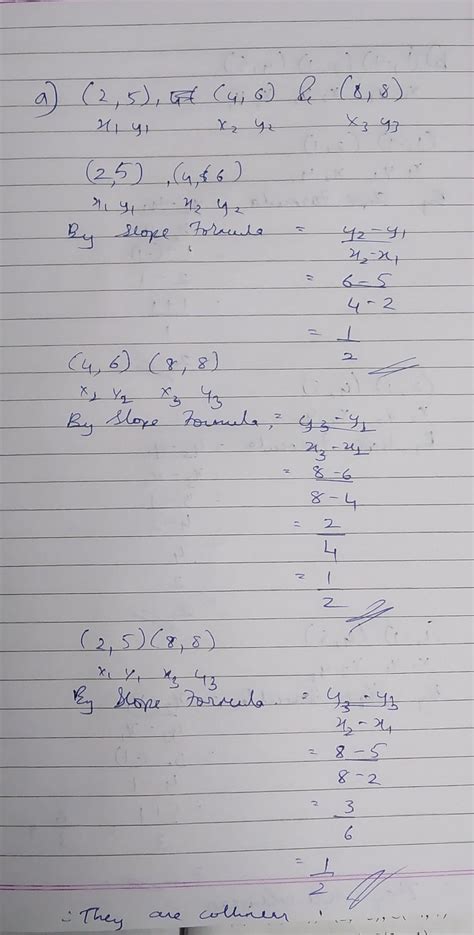 a) (2,5), (4,6) & (8,8)
x₁ y₁ x₂ y₂ x₃ y₃
(2,5), (4,6)
x₁ y₁ x₂ y₂
By Slope Formula = y₂-y₁
x₂-x₁
= 6-5
4-2
= 1
2
(4,6) (8,8)
x₂ y₂ x₃ y₃
By Slope Formula, = y₃-y₁
x₃-x₁
= 8-6
8-4
= 2
4
= 1
2
(2,5)(8,8)
x₁ y₁ x₃ y₃
By Slope Formula = y₃-y₃
x₂-x₁
= 8-5
8-2
= 3
6
= 1
2
∴ They are collinear